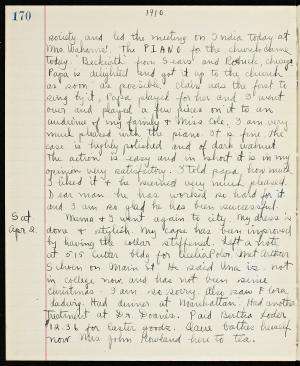 170
1910.
society and led the meeting on India today at
Mrs. The PIANO for the church came
today. "Beckwith" from Sears' and Roebuck, Chicago
Papa is delighted and got it up to the church
as soon as possible. Clair was the first to
sing by it, Papa played for her and I went
over and played a few pieces on it to an
audience of my family & Miss Cole. I am very
much pleased with the piano. It is fine the
case is highly polished and of dark walnut
The action is easy and in short it is in my
opinion very satisfactory. I told papa how much
I liked it & he seemed very much pleased.
Dear man he has worked so hard for it
and I am so glad he has been successful.
Sat
Apr 2.
Mama & I went again to city. My dress is
done & stylish. My cape has been improved
by having the collar stiffened. Left a note
at 515 Cutler bldg for Met Arthur
on Main St. He said Una is not
in college now and has not been since
Christmas. I am so sorry. Also saw Flora
Had dinner at Manhattan. Had another
treatment at Dr. Paid Bertha Loder
14.36 for Easter goods. Claire bathes herself
now Mrs John Rowland here to tea.